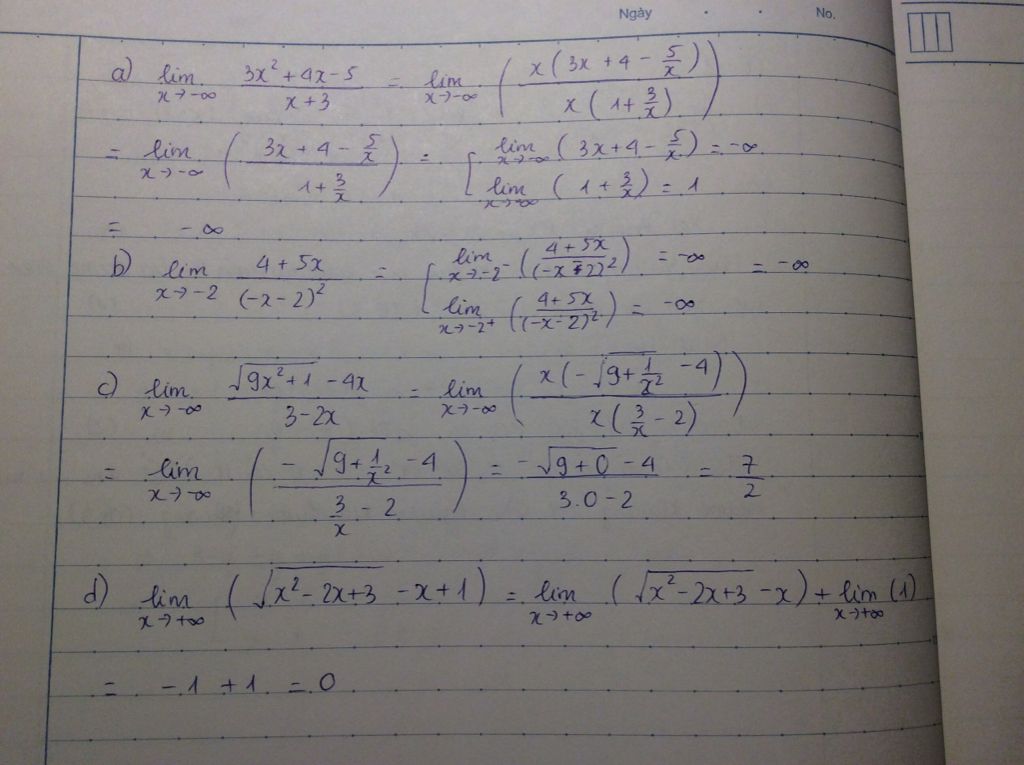 Ngày . . No.
a) lim x→-∞ (3x² + 4x - 5)/(x + 3) = lim x→-∞ ( x(3x + 4 - 5/x) / x(1 + 3/x) )
= lim x→-∞ ( (3x + 4 - 5/x) / (1 + 3/x) ) = [ lim x→-∞ (3x + 4 - 5/x) = -∞
lim x→-∞ (1 + 3/x) = 1
= -∞
b) lim x→-2 (4 + 5x)/(-x - 2)² = [ lim x→-2⁻ ((4 + 5x)/(-x - 2)²) = -∞ = -∞
lim x→-2⁺ ((4 + 5x)/(-x - 2)²) = -∞
c) lim x→-∞ (√(9x² + 1) - 4x)/(3 - 2x) = lim x→-∞ ( x(-√(9 + 1/x²) - 4) / x(3/x - 2) )
= lim x→-∞ ( (-√(9 + 1/x²) - 4) / (3/x - 2) ) = (-√(9 + 0) - 4)/(3.0 - 2) = 7/2
d) lim x→+∞ (√(x² - 2x + 3) - x + 1) = lim x→+∞ (√(x² - 2x + 3) - x) + lim x→+∞ (1)
= -1 + 1 = 0